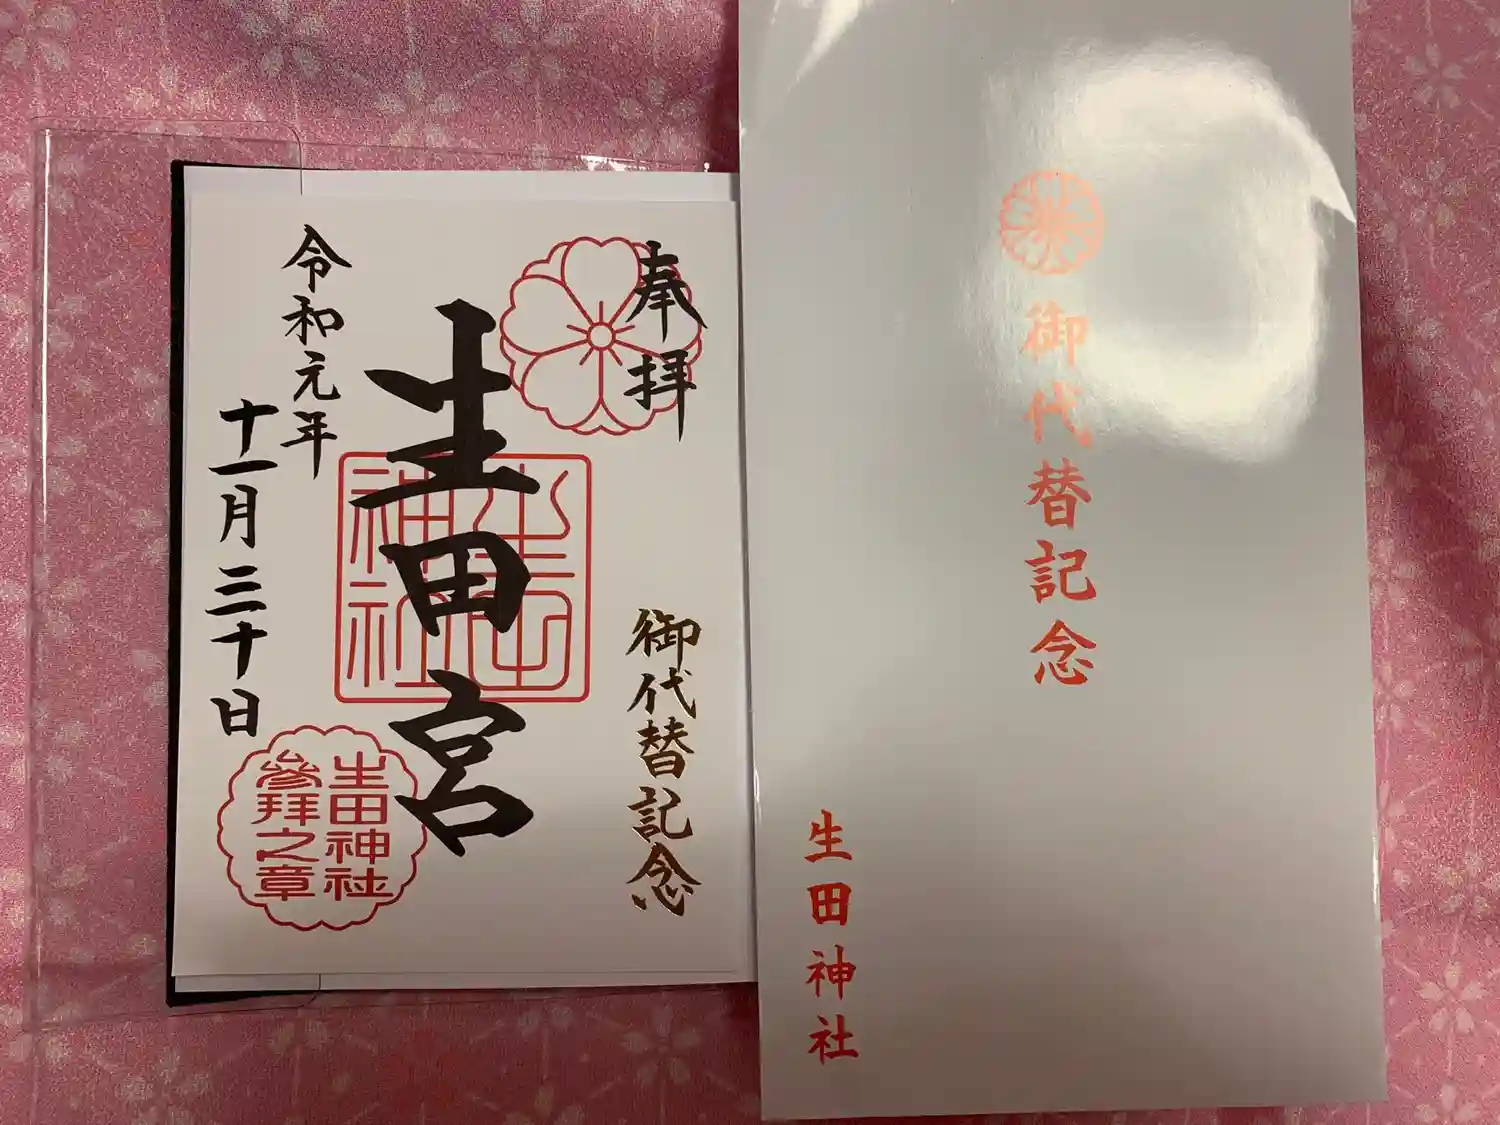 奉拝
御代替記念
生田宮
生田神社
令和元年
十一月三十日
生田神社
参拝之章
御代替記念
生田神社